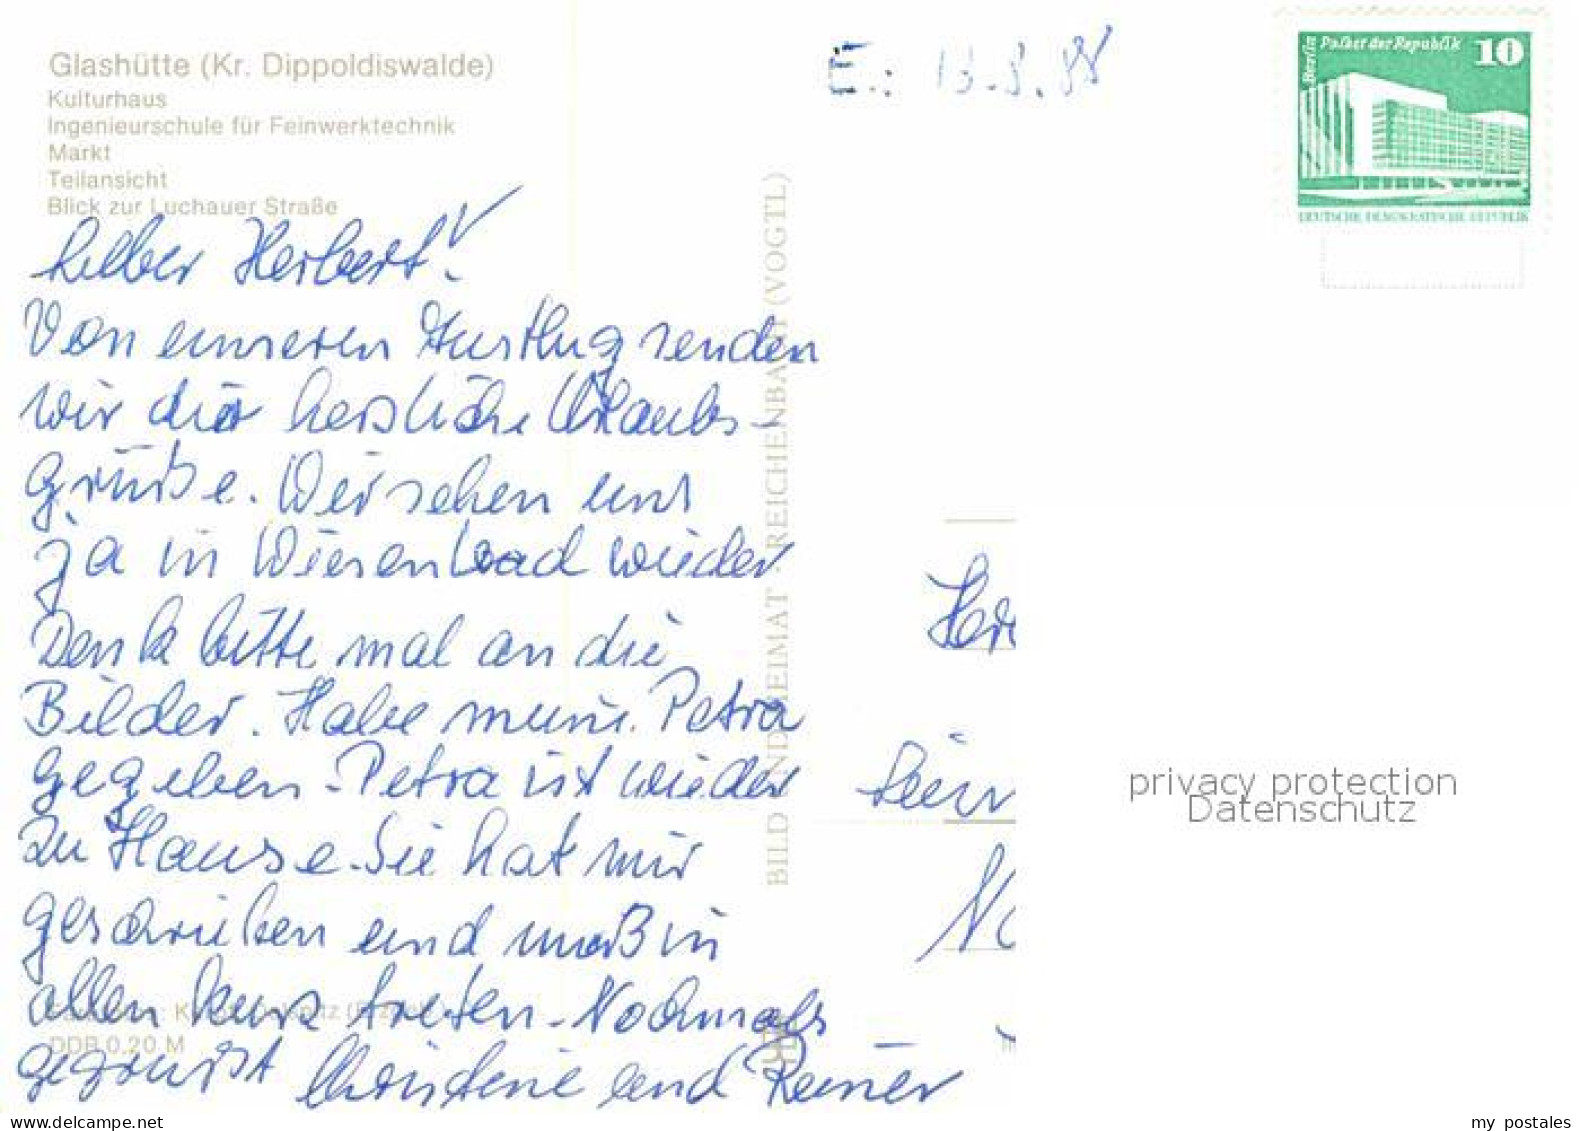 Glashütte (Kr. Dippoldiswalde)
Kulturhaus
Ingenieurschule für Feinwerktechnik
Markt
Teilansicht
Blick zur Luchauer Straße
E.: 13.8.88
Berlin Palast der Republik 10
DEUTSCHE DEMOKRATISCHE REPUBLIK
Lieber Herbert!
Von unseren Ausflug senden
wir dir herzliche Urlaubs-
grüße. Wir sehen uns
ja in Wiesenbad wieder
Denk bitte mal an die
Bilder. Habe meine Petra
gegeben - Petra ist wieder
zu Hause. Sie hat mir
geschrieben und muß in
allen kurz treten - Nochmals
gegrüßt Christine und Reiner
BILD UND HEIMAT · REICHENBACH (VOGTL)
DDB 0,20 M
privacy protection
Datenschutz
www.delcampe.net
my_postales